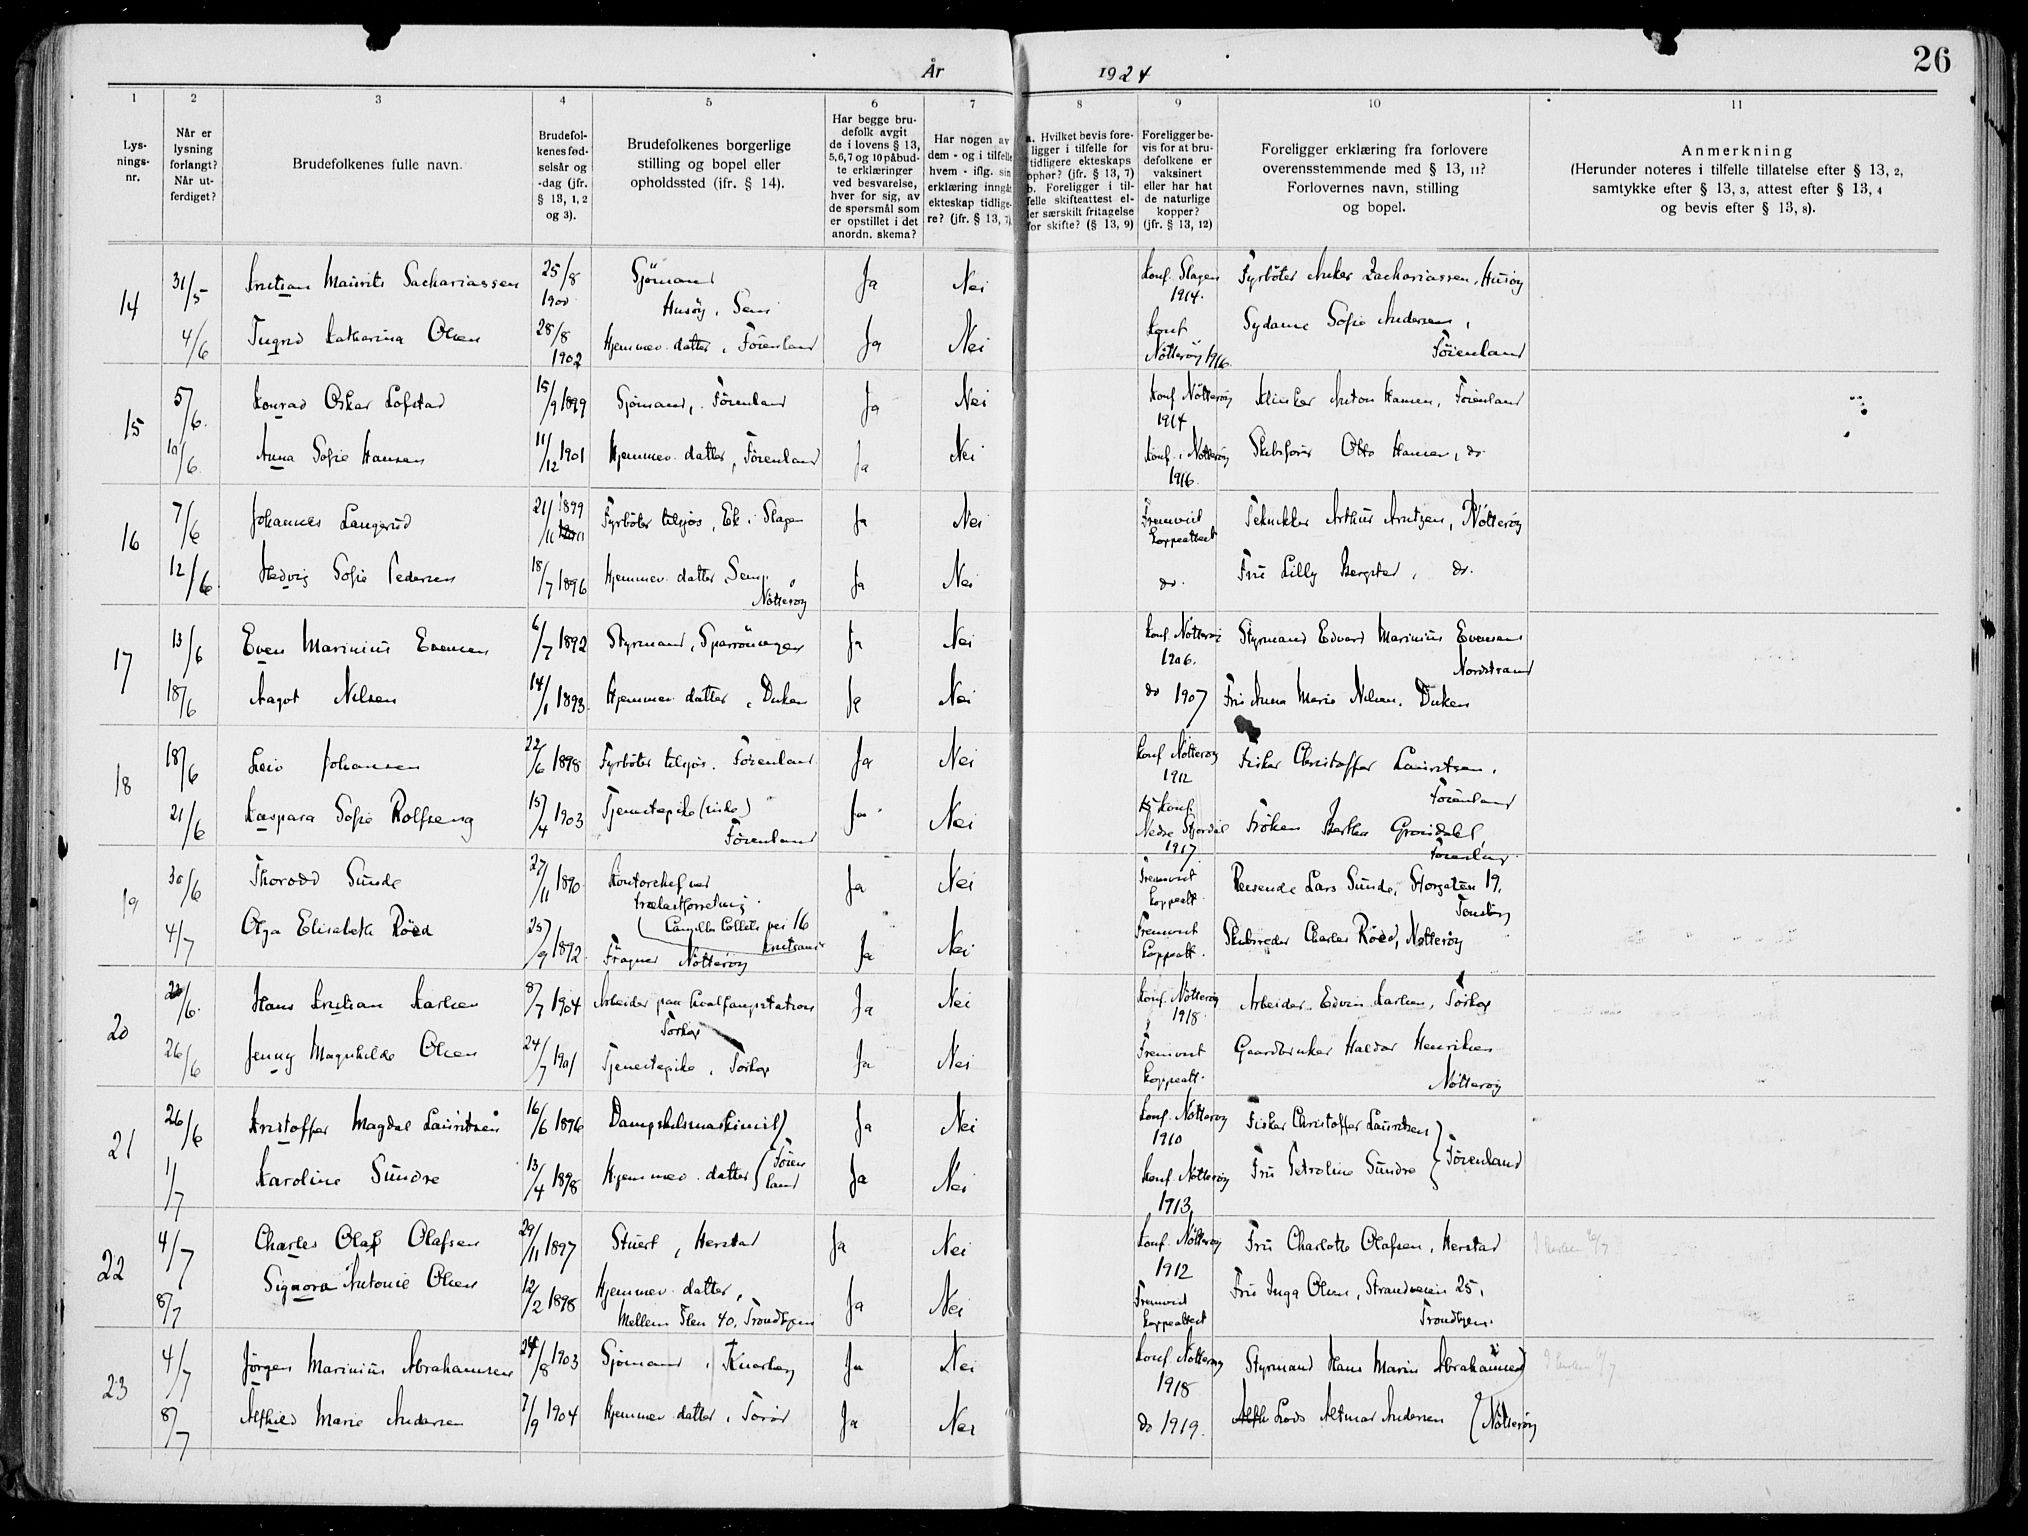 26
År 1924
1 2 3 4 5 6 7 8 9 10 11
Lys-
nings-
nr.
Når er
lysning
forlangt?
Når ut-
ferdiget?
Brudefolkenes fulle navn.
Brudefol-
kenes fød-
selsår og
-dag (jfr.
§ 13, 1, 2
og 3).
Brudefolkenes borgerlige
stilling og bopel eller
opholdssted (jfr. § 14).
Har begge bru-
defolk avgit
de i lovens § 13,
5,6,7 og 10 påbud-
te erklæringer
ved besvarelse,
hver for sig, av
de spørsmål som
er opstillet i det
anordn. skema?
Har nogen av
dem - og i tilfelle
hvem - iflg. sin
erklæring inngåt
ekteskap tidlige-
re? (jfr. § 13, 7)
a. Hvilket bevis fore-
ligger i tilfelle for
tidligere ekteskaps
ophør? (jfr. § 13, 7)
b. Foreligger i til-
felle skifteattest el-
ler særskilt fritagelse
for skifte? (§ 13, 9)
Foreligger be-
vis for at bru-
defolkene er
vaksinert
eller har hat
de naturlige
kopper?
(jfr. § 13, 12)
Foreligger erklæring fra forlovere
overensstemmende med § 13, 11?
Forlovernes navn, stilling
og bopel.
Anmerkning
(Herunder noteres i tilfelle tillatelse efter § 13, 2,
samtykke efter § 13, 3, attest efter § 13, 4
og bevis efter § 13, 8).
14 31/5 Kristian Maurits Sachariassen 25/8 1900 Sjömand Husöy, Sem Ja Nei Konf. Slagen 1914. Fyrböter Anker Zachariassen, Husöy
4/6 Ingrid Katharina Olsen 28/8 1902 Hjemmev. datter, Föienland Ja Nei Konf Nötteröy 1916. Sydame Sofie Andersen, Föienland
15 5/6. Konrad Oskar Lofstad 15/9 1899 Sjömand, Föienland Ja Nei Konf Nötteröy 1914 Klinker Anton Hansen, Föienland
10/6. Anna Sofie Hansen 11/12 1901 Hjemmev. datter, Föienland Ja Nei Konf. i Nötteröy 1916. Skibsförer Otto Hansen, do
16 7/6 Johannes Langerud 21/11 1899 Fyrböter tilsjös, Ek i Slagen Ja Nei Fremvist koppeattest Tekniker Arthur Arntzen, Nötteröy
12/6 Hedvig Sofie Pedersen 18/7 1896 Hjemmev. datter Sem, Nötteröy Ja Nei do. Fru Lilly Bergsted, do.
17 13/6 Even Marinius Evensen 6/7 1892 Styrmand, Ja Nei Konf. Nötteröy 1906. Styrmand Edvard Marinius Evensen Nordstrand
18/6 Aagot Nilsen 14/1 1893. Hjemmev. datter, Duken Ja Nei do 1907 Fru Anna Marie Nilsen. Duken
18 18/6 Leiv Johansen 22/6 1898 Fyrböter tilsjös. Föienland Ja Nei Konf Nötteröy 1912 Fisker Christoffer Lauritsen, Föienland
21/6 Kaspara Sofie Rolfseng 15/4 1903 Tjenestepike Föienland Ja Nei konf. Nedre Stjördal 1917. Fröken Berthe Gröndahl, Föienland
19 30/6 Thorodd Sunde 27/11 1890. Kontorchef ved trælastforretning. Camilla Colletts vei 16 Kristiania Ja Nei Fremvist koppeatt. Reisende Lars Sunde, Storgaten 19, Tönsberg
4/7 Olga Elisabeth Röed 25/9 1892. Nötteröy Ja Nei Fremvist koppeatt. Skibsreder Charles Röed, Nötteröy
20 20/6. Hans Kristian Karlsen 8/7 1904 Arbeider paa hvalfangststation Torkop Ja Nei Konf. Nötteröy 1918. Arbeider Edvin Karlsen, Torkop
26/6 Jenny Magnhilde Olsen 24/7 1901 Tjenestepike, Torkop Ja Nei Fremvist koppeatt. Gaardbruker Haldor Henriksen Nötteröy
21 26/6 Kristoffer Magdal Lauritsen 16/6 1896 Dampskibsmaskinist Ja Nei Konf. Nötteröy 1910 Fisker Christoffer Lauritsen
1/7 Karoline Sundre 13/4 1898 Hjemmev. datter Föienland Ja Nei Konf. Nötteröy 1913. Fru Petroline Sundre Föienland
22 4/7 Charles Olaf Olafsen 29/11 1897 Stuert, Herstad Ja Nei Konf. Nötteröy 1912 Fru Charlotte Olafsen, Herstad I kirken 6/7
8/7 Signora Antonie Olsen 12/2 1898 Hjemmev. datter, Mellem Ilen 40, Trondhjem Ja Nei Fremvist koppeattest Fru Inga Olsen, Strandveien 25, Trondhjem.
23 4/7 Jörgen Marinius Abrahamsen 24/8 1903 Sjömand, Knarberg Ja Nei Konf. Nötteröy 1918 Styrmand Hans Marius Abrahamsen I kirken 6/7
8/7 Alfhild Marie Andersen 7/9 1904 Hjemmev. datter, Toröd Ja Nei do 1919. Lods Altmar Andersen Nötteröy